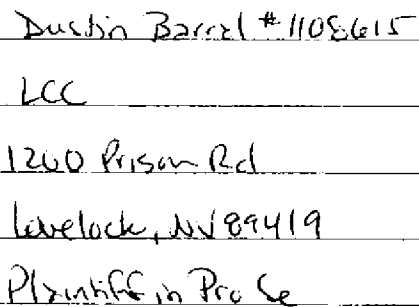 Dustin Barral #1108615
LCC
1200 Prison Rd
Lovelock, NV 89419
Plaintiff in Pro Se